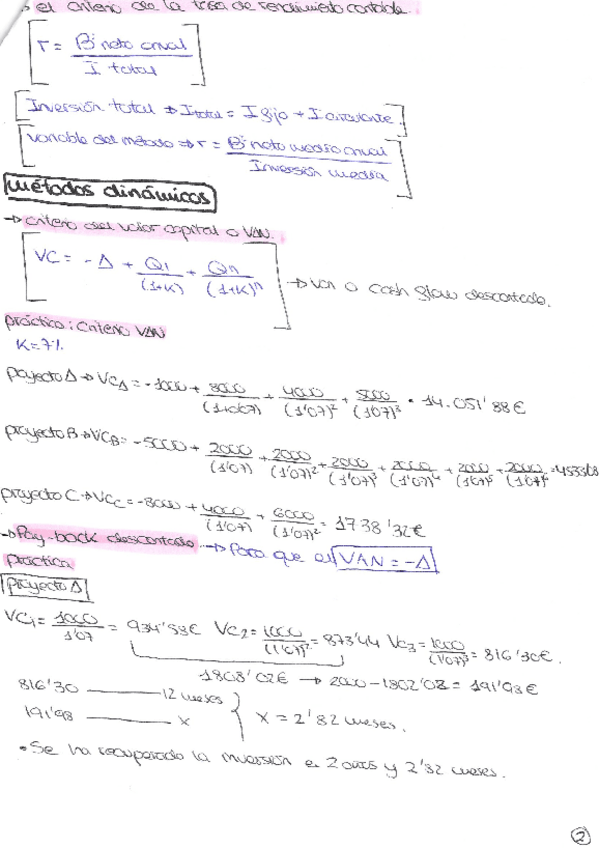 → el criterio de la tasa de rendimiento contable.
r = Bº neto anual / I total
Inversión total ⇒ Itotal = I fijo + I circulante
variable del método ⇒ r = Bº neto medio anual / Inversión media
métodos dinámicos
→ criterio del valor capital o VAN.
VC = - A + Q1/(1+K) + Qn/(1+K)ⁿ → van o cash flow descontado.
práctica: criterio VAN
K=7%
proyecto A → VCA = -1000 + 8000/(1+0'07) + 4000/(1'07)² + 5000/(1'07)³ = 14.051'88€
proyecto B → VCB = -5000 + 2000/(1'07) + 2000/(1'07)² + 2000/(1'07)³ + 2000/(1'07)⁴ + 2000/(1'07)⁵ + 2000/(1'07)⁶ =
proyecto C → VCC = -8000 + 4000/(1'07) + 6000/(1'07)² = 1738'32€
→ Pay-back descontado → Para que el VAN = -A
práctica
Proyecto A
VC1 = 1000/1'07 = 934'58€ VC2 = 1000/(1'07)² = 873'44 VC3 = 1000/(1'07)³ = 816'30€.
1808'02€ → 2000-1802'02 = 191'98€
816'30 — 12 meses
191'98 — x
x = 2'82 meses.
• Se ha recuperado la inversión e 2 años y 2'82 meses.
2